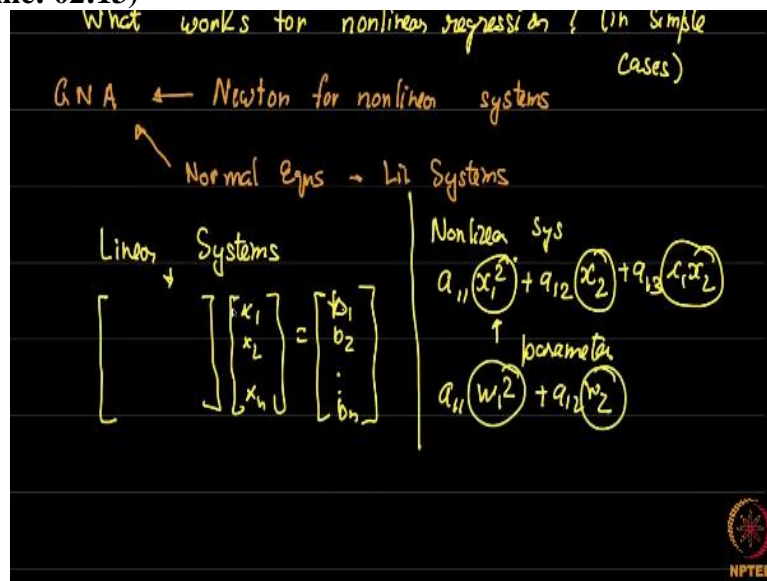 What works for nonlinear regression? (in simple
cases)
GNA ← Newton for nonlinear systems
Normal Eqns → Lin Systems
Linear Systems
[ ] [x₁ x₂ xₙ] = [b₁ b₂ ⋮ bₙ]
Nonlinear Sys
a₁₁ x₁² + a₁₂ x₂ + a₁₃ x₁x₂
↑ parameter
a₁₁ w₁² + a₁₂ w₂
NPTEL